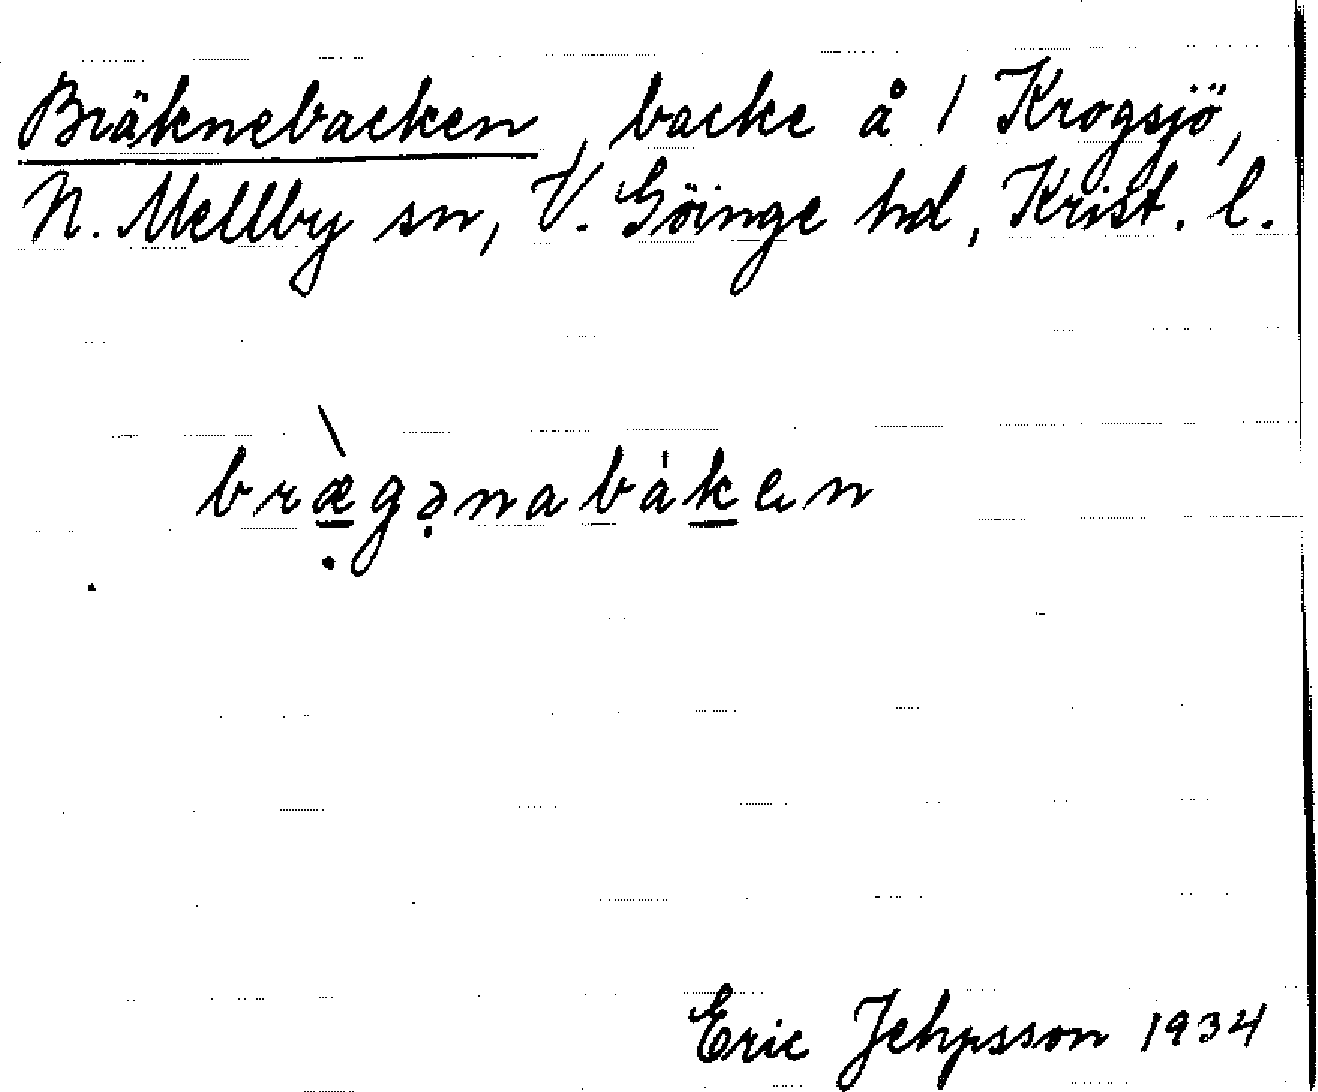 Bräknebacken, backe å 1 Krogsjö,
N. Mellby sn, V. Göinge hd, Krist. l.
bræ̀gənabåken
Eric Jehpsson 1934